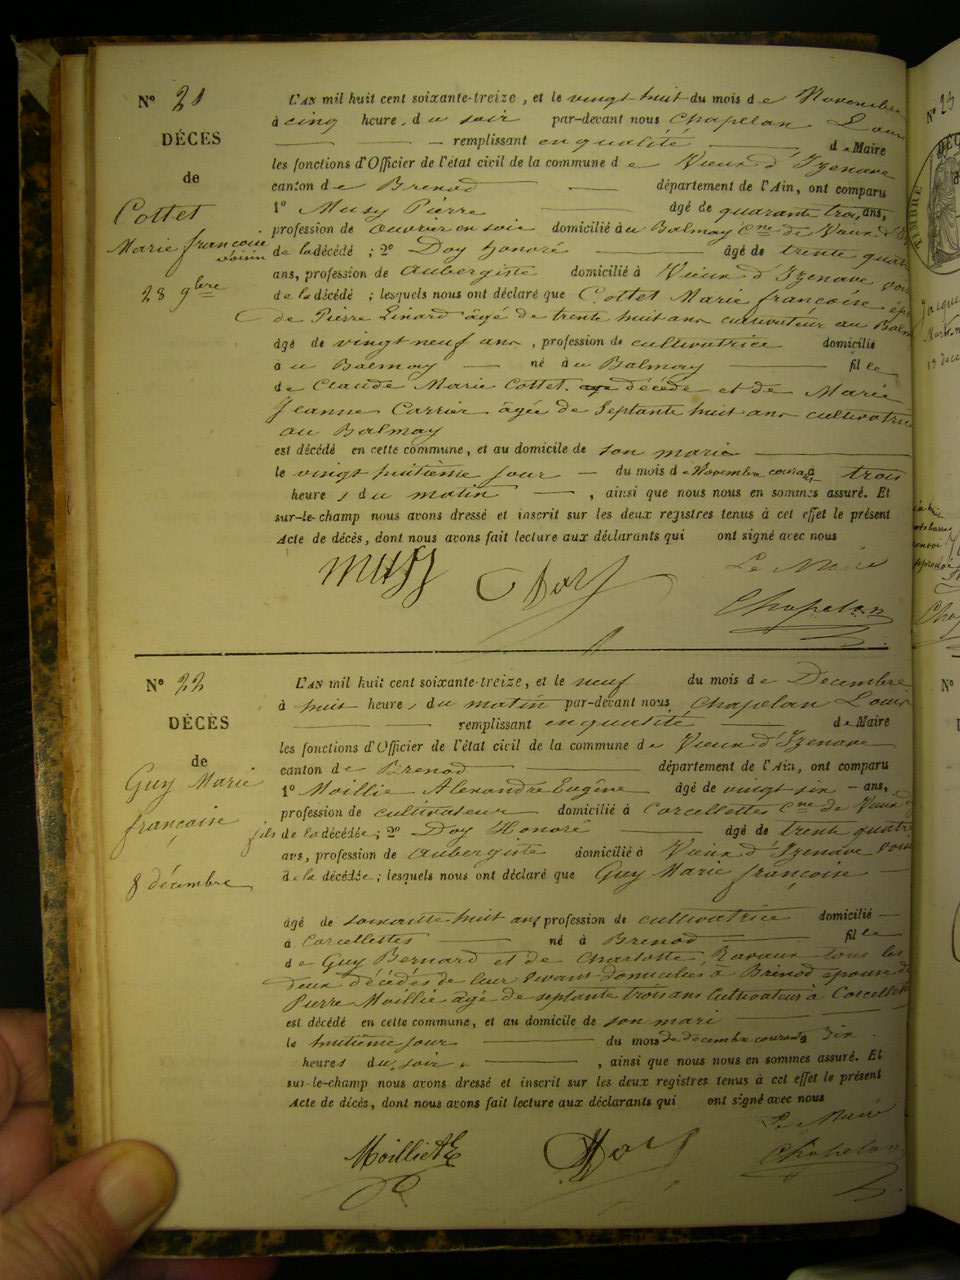 N° 21
DÉCES
de
Cottet
Marie françoise
voisin
28 9bre
L'AN mil huit cent soixante-treize, et le vingt huit du mois de Novembre
à cinq heure, du soir par-devant nous Chapelan Louis
remplissant en qualité de Maire
les fonctions d'Officier de l'état civil de la commune de Vieux d'Izenave
canton de Brenod département de l'Ain, ont comparu
1° Musy Pierre âgé de quarante trois ans,
profession de Ouvrier en soie domicilié au Balmay Cne de Vieux d'Iz
de la décédé ; 2° Doy honoré âgé de trente quatre
ans, profession de Aubergiste domicilié à Vieux d'Izenave
de la décédé ; lesquels nous ont déclaré que Cottet Marie françoise
de Pierre Linard âgé de trente huit ans cultivateur au Balm
âgé de vingt neuf ans, profession de cultivatrice domicilié
au Balmay né au Balmay fille
de Claude Marie Cottet décédé et de Marie
Jeanne Carrier âgée de Septante huit ans cultivatrice
au Balmay
est décédé en cette commune, et au domicile de son marie
le vingt huitième jour du mois de Novembre courant à trois
heures du matin, ainsi que nous nous en sommes assuré. Et
sur-le-champ nous avons dressé et inscrit sur les deux registres tenus à cet effet le présent
Acte de décès, dont nous avons fait lecture aux déclarants qui ont signé avec nous
Le Maire
musy Doy
Chapelan
N° 22
DÉCÈS
de
Guy Marie
françoise
8 décembre
L'AN mil huit cent soixante-treize, et le neuf du mois de Decembre
à huit heures du matin par-devant nous Chapelan Louis
remplissant en qualité de Maire
les fonctions d'Officier de l'état civil de la commune de Vieux d'Izenave
canton de Brenod département de l'Ain, ont comparu
1° Moillie Alexandre Eugêne âgé de vingt six ans,
profession de cultivateur domicilié à Corcellettes Cne de Vieux d
fils de la décédée ; 2° Doy Honoré âgé de trente quatre
ans, profession de Aubergiste domicilié à Vieux d'Izenave
de la décédée ; lesquels nous ont déclaré que Guy Marie françoise
âgé de soixante huit ans, profession de cultivatrice domicilié
à Corcellettes né à Brenod fille
de Guy Bernard et de Charlotte Ravaux tous les
deux décédés de leur vivant domiciliés à Brenod épouse de
Pierre Moillie âgé de septante trois ans Cultivateur à Corcellett
est décédé en cette commune, et au domicile de son mari
le huitième jour du mois de decembre courant à dix
heures du soir, ainsi que nous nous en sommes assuré. Et
sur-le-champ nous avons dressé et inscrit sur les deux registres tenus à cet effet le présent
Acte de décès, dont nous avons fait lecture aux déclarants qui ont signé avec nous
Le Maire
Moillie AE Doy Chapelan
N° 23
TIMBRE
N°